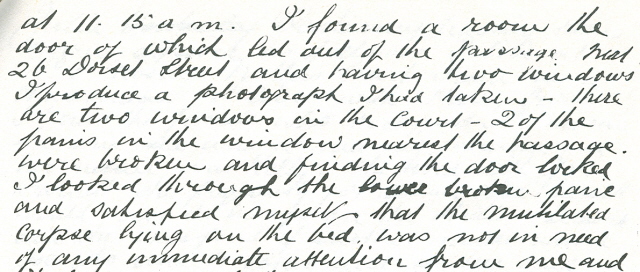 at 11. 15 a m. I found a room the
door of which led out of the passage near
26 Dorset Street and having two windows
I produce a photograph I had taken - there
are two windows in the court - 2 of the
panes in the window nearest the passage.
were broken and finding the door locked
I looked through the lower broken pane
and satisfied myself that the mutilated
corpse lying on the bed was not in need
of any immediate attention from me and